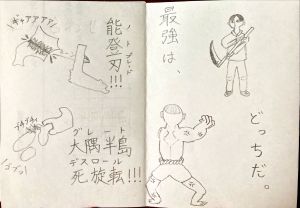 最強は、
どっちだ。
ギャアアアア
ノトブレード
能登刃!!!
ブチブチィ
グレート
大隅半島
デスロール
死旋転!!!